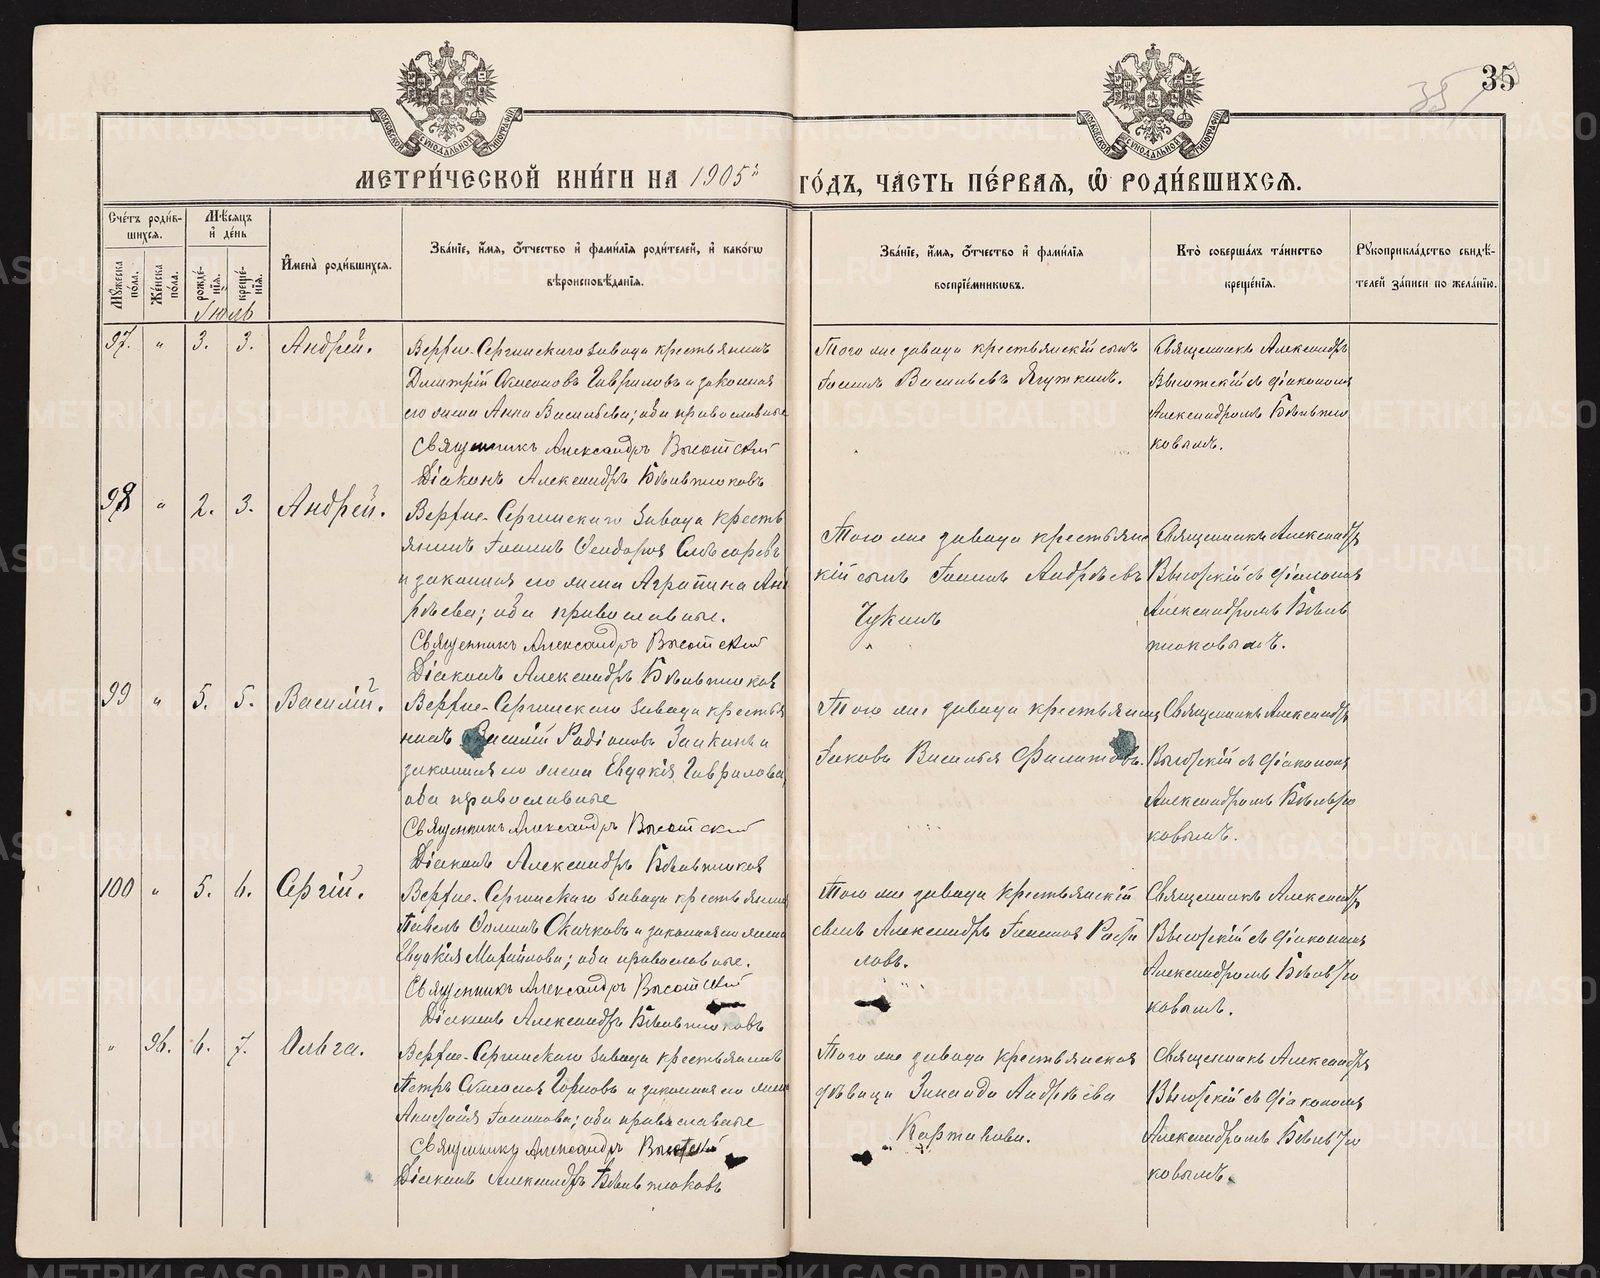 35
МЕТРИ́ЧЕСКОЙ КНИ́ГИ НА 1905й ГО́ДЪ, ЧА́СТЬ ПЕ́РВАЯ, Ѿ РОДИ́ВШИХСЯ.
Сче́тъ роди́вшихся.
Му́жеска по́ла.
Же́нска по́ла.
Мѣ́сяцъ и́ де́нь
рожде́нїя.
креще́нїя.
И́мена̀ роди́вшихся.
Зва́нїе, и́мя, о́тчество и́ фами́лїя роди́телей, и́ како́гѡ
вѣроисповѣ́данїя.
Зва́нїе, и́мя, о́тчество и́ фами́лїя
воспрїе́мникѡвъ.
Кто̀ соверша́лъ та́инство
креще́нїя.
Рукоприкла́дство свидѣ́-
телей за́писи по жела́нїю.
Іюль
97. " 3. 3. Андрей.
Верхне-Сергинскаго завода крестьянинъ
Димитрій Симеоновъ Гавриловъ и законная
его жена Анна Васильева; оба православные
Священникъ Александръ Высотскій
Діаконъ Александръ
Того же завода крестьянскій сынъ
Іоаннъ Васильевъ Ягуткинъ.
Священникъ Александръ
Высотскій съ діакономъ
Александромъ
ковымъ.
98 " 2. 3. Андрей.
Верхне-Сергинскаго завода кресть
янинъ Іоаннъ Ѳеодоровъ Слѣсаревъ
и законная его жена Агрипина Анд
рѣева; оба православные.
Священникъ Александръ Высотскій
Діаконъ Александръ
Того же завода крестьянс
кій сынъ Іоаннъ Андрѣевъ
Чукинъ
Священникъ Александръ
Высотскій съ діакономъ
Александромъ
99 " 5. 5. Василій.
Верхне-Сергинскаго завода крестья
нинъ Василій Родіоновъ Заикинъ и
законная его жена Евдокія Гаврилова,
оба православные
Священникъ Александръ Высотскій
Діаконъ Александръ
Того же завода крестьянинъ
Іаковъ Васильевъ Филатовъ.
Священникъ Александръ
Высотскій съ діакономъ
Александромъ
ковымъ.
100 " 5. 6. Сергій.
Верхне-Сергинскаго завода крестьянинъ
Павелъ Ѳоминъ Скачковъ и законная его жена
Евдокія Михайлова; оба православные.
Священникъ Александръ Высотскій
Діаконъ Александръ
Того же завода крестьянскій
сынъ Александръ Іоанновъ
Священникъ Александръ
Высотскій съ діакономъ
Александромъ
ковымъ.
" 96. 6. 7. Ольга.
Верхне-Сергинскаго завода крестьянинъ
Петръ Симеоновъ Горновъ и законная его жена
Анфисія Іоаннова; оба православные
Священникъ Александръ Высотскій
Діаконъ Александръ
Того же завода крестьянская
дѣвица Зинаида Андрѣева
Картакова.
Священникъ Александръ
Высотскій съ діакономъ
Александромъ
ковымъ.
METRIKI.GASO-URAL.RU